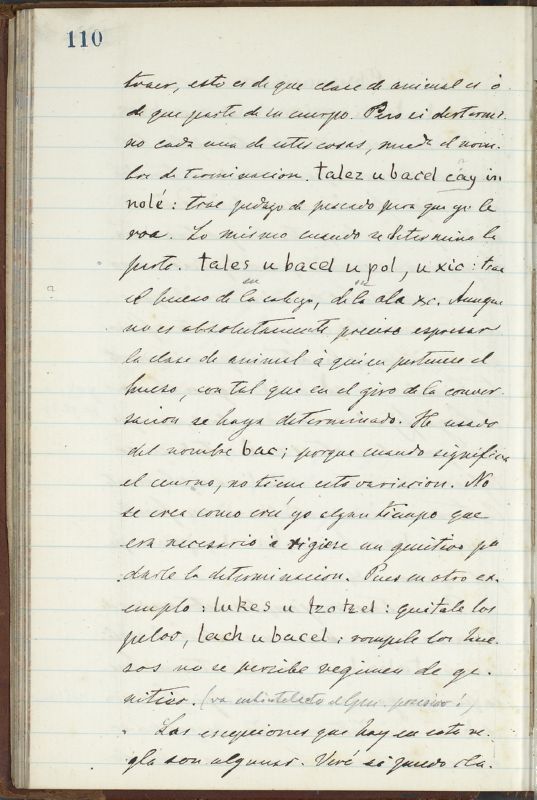 110
traer, esto es de que clase de animal es ò
de que parte de su cuerpo. Pero si determi-
no cada una de estas cosas, muda el nom-
bre de terminacion. talez u bacel cay in
nolé: trae pedazo de pescado para que yo le
roa. Lo mismo cuando se determina la
parte. tales u bacel u pol, u xic: trae
el hueso de la cabeza, de la ala &c. Aunque
no es absolutamente preciso espresar
la clase de animal à quien pertenece el
hueso, con tal que en el giro de la conver-
sacion se haya determinado. He usado
del nombre bac; porque cuando significa
el cuerno, no tiene esta variacion. No
se crea como creí yo algun tiempo que
era necesario à rigiese un genitivo pa
darle la determinacion. Pues en otro ex-
emplo: lukes u tzotzel: quitale los
pelos, lach u bacel: rompele los hue-
sos no se percibe regimen de ge-
nitivo. (va el Gen. posesivo!)
Las escepciones que hay en esta re-
gla son algunas. Veré si puedo cla-